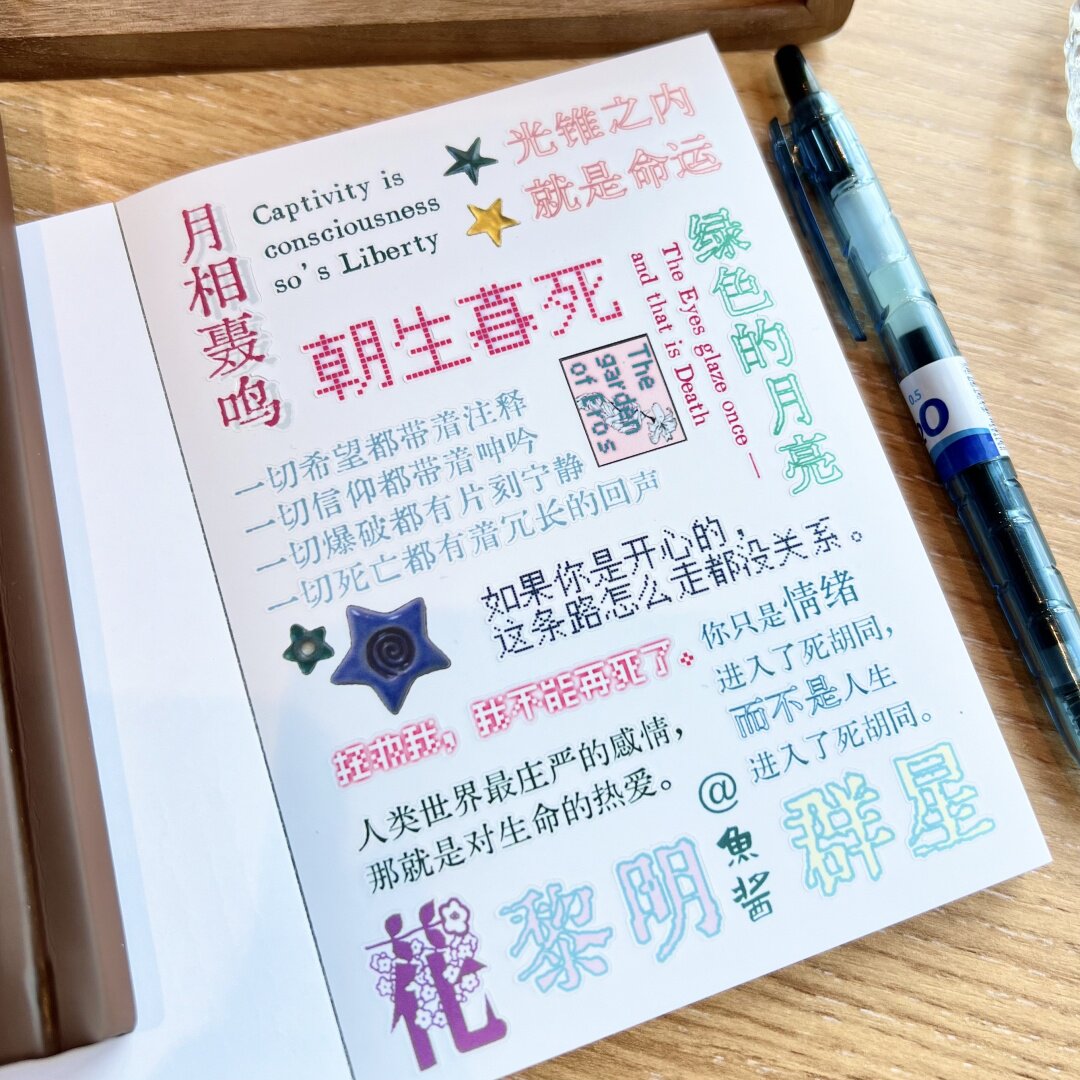 光锥之内
就是命运
Captivity is
consciousness
so's Liberty
月相轰鸣
绿色的月亮
The Eyes glaze once —
and that is Death
朝生暮死
The
garden
of Eros
一切希望都带着注释
一切信仰都带着呻吟
一切爆破都有片刻宁静
一切死亡都有着冗长的回声
如果你是开心的，
这条路怎么走都没关系。
你只是情绪
进入了死胡同，
而不是人生
进入了死胡同。
拯救我，我不能再死了。
人类世界最庄严的感情，
那就是对生命的热爱。
@魚酱
群星
黎明
花
0.5